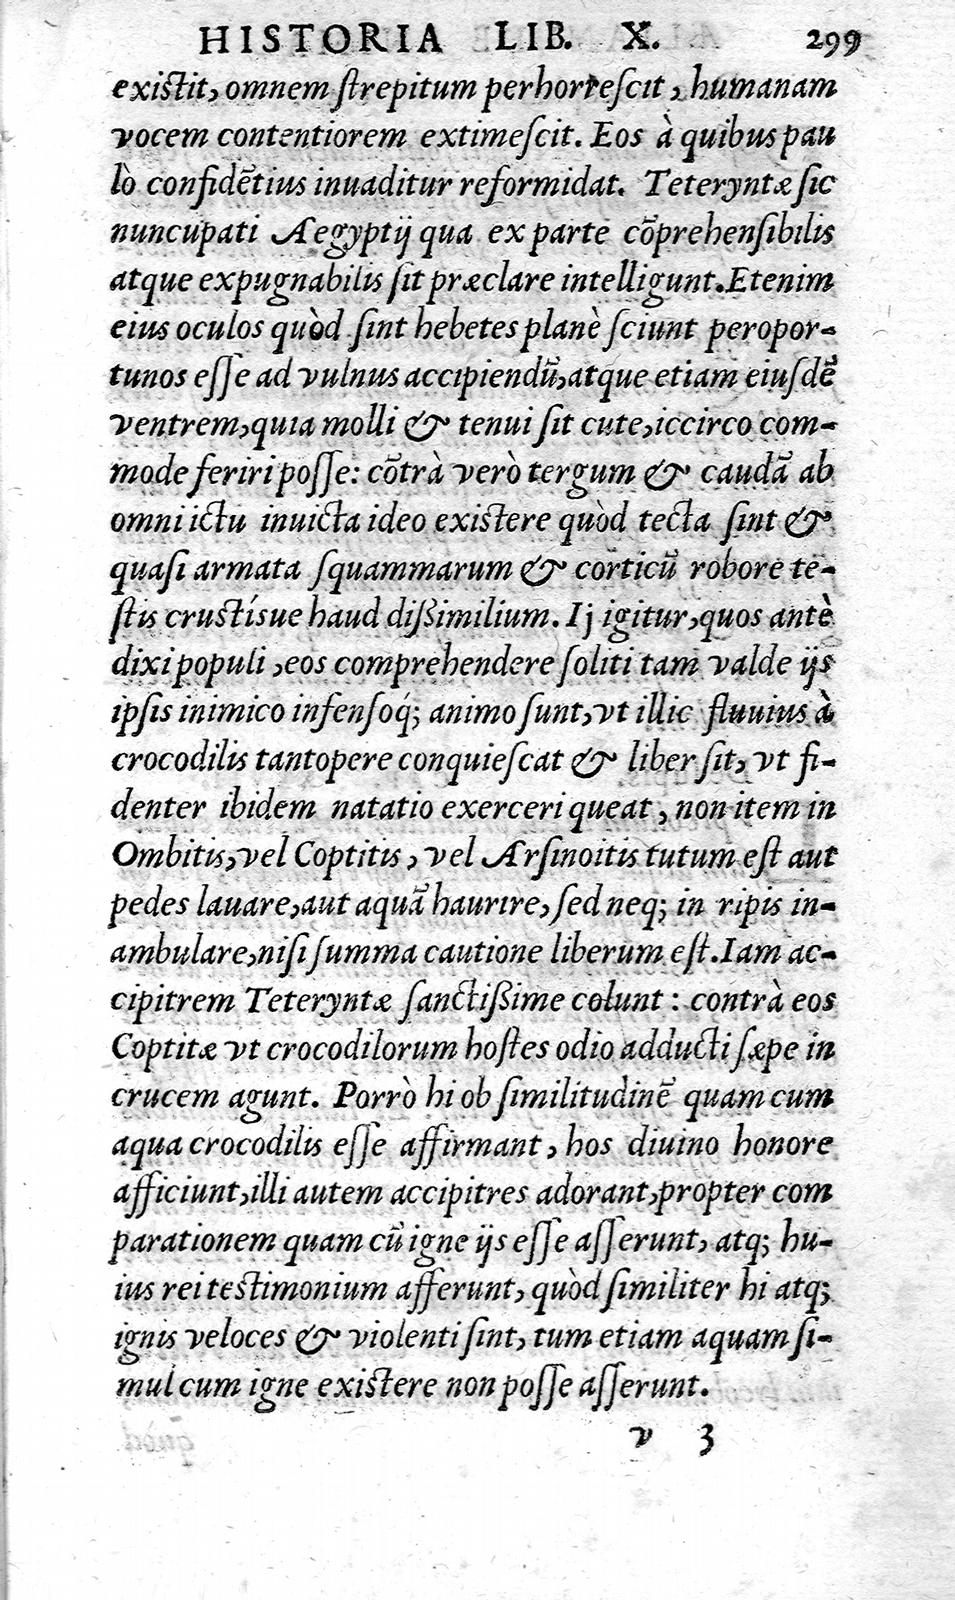 HISTORIA LIB. X. 299
existit, omnem ſtrepitum perhorreſcit, humanam
vocem contentiorem extimeſcit. Eos à quibus pau
lò confidētius inuaditur reformidat. Teteryntæ ſic
nuncupati Aegyptij qua ex parte cōprehenſibilis
atque expugnabilis ſit præclare intelligunt. Etenim
eius oculos quòd ſint hebetes planè ſciunt peropor-
tunos eſſe ad vulnus accipiendū, atque etiam eiuſdē
ventrem, quia molli & tenui ſit cute, iccirco com-
mode feriri poſſe: cōtrà verò tergum & caudā ab
omni ictu inuicta ideo existere quòd tecta ſint &
quaſi armata ſquammarum & corticū robore te-
ſtis crustísue haud dißimilium. Ij igitur, quos antè
dixi populi, eos comprehendere ſoliti tam valde ijs
ipſis inimico infenſoq́; animo ſunt, vt illic fluuius à
crocodilis tantopere conquieſcat & liber ſit, vt fi-
denter ibidem natatio exerceri queat, non item in
Ombitis, vel Coptitis, vel Arſinoitis tutum eſt aut
pedes lauare, aut aquā haurire, ſed neq; in ripis in-
ambulare, niſi ſumma cautione liberum eſt. Iam ac-
cipitrem Teteryntæ ſanctißime colunt: contrà eos
Coptitæ vt crocodilorum hoſtes odio adducti ſæpe in
crucem agunt. Porrò hi ob ſimilitudinē quam cum
aqua crocodilis eſſe affirmant, hos diuino honore
afficiunt, illi autem accipitres adorant, propter com
parationem quam cū igne ijs eſſe aſſerunt, atq; hu-
ius rei testimonium afferunt, quòd ſimiliter hi atq;
ignis veloces & violenti ſint, tum etiam aquam ſi-
mul cum igne existere non poſſe aſſerunt.
v 3